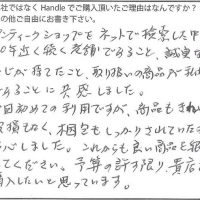 社ではなくHandleでご購入頂いたご理由はなんですか?
の他ご自由にお書き下さい。
ンティークショップをネットで検索した中
0年近く続く老舗であること、誠実な
ジが持てたこと、取り扱いの商品が私
ることに共感しました。
回初めての利用ですが、商品もきれい
損傷なく、梱包もしっかりされていた
しました。これからも良い商品を
てください。予算の許す限り、貴店
購入したいと思っています。